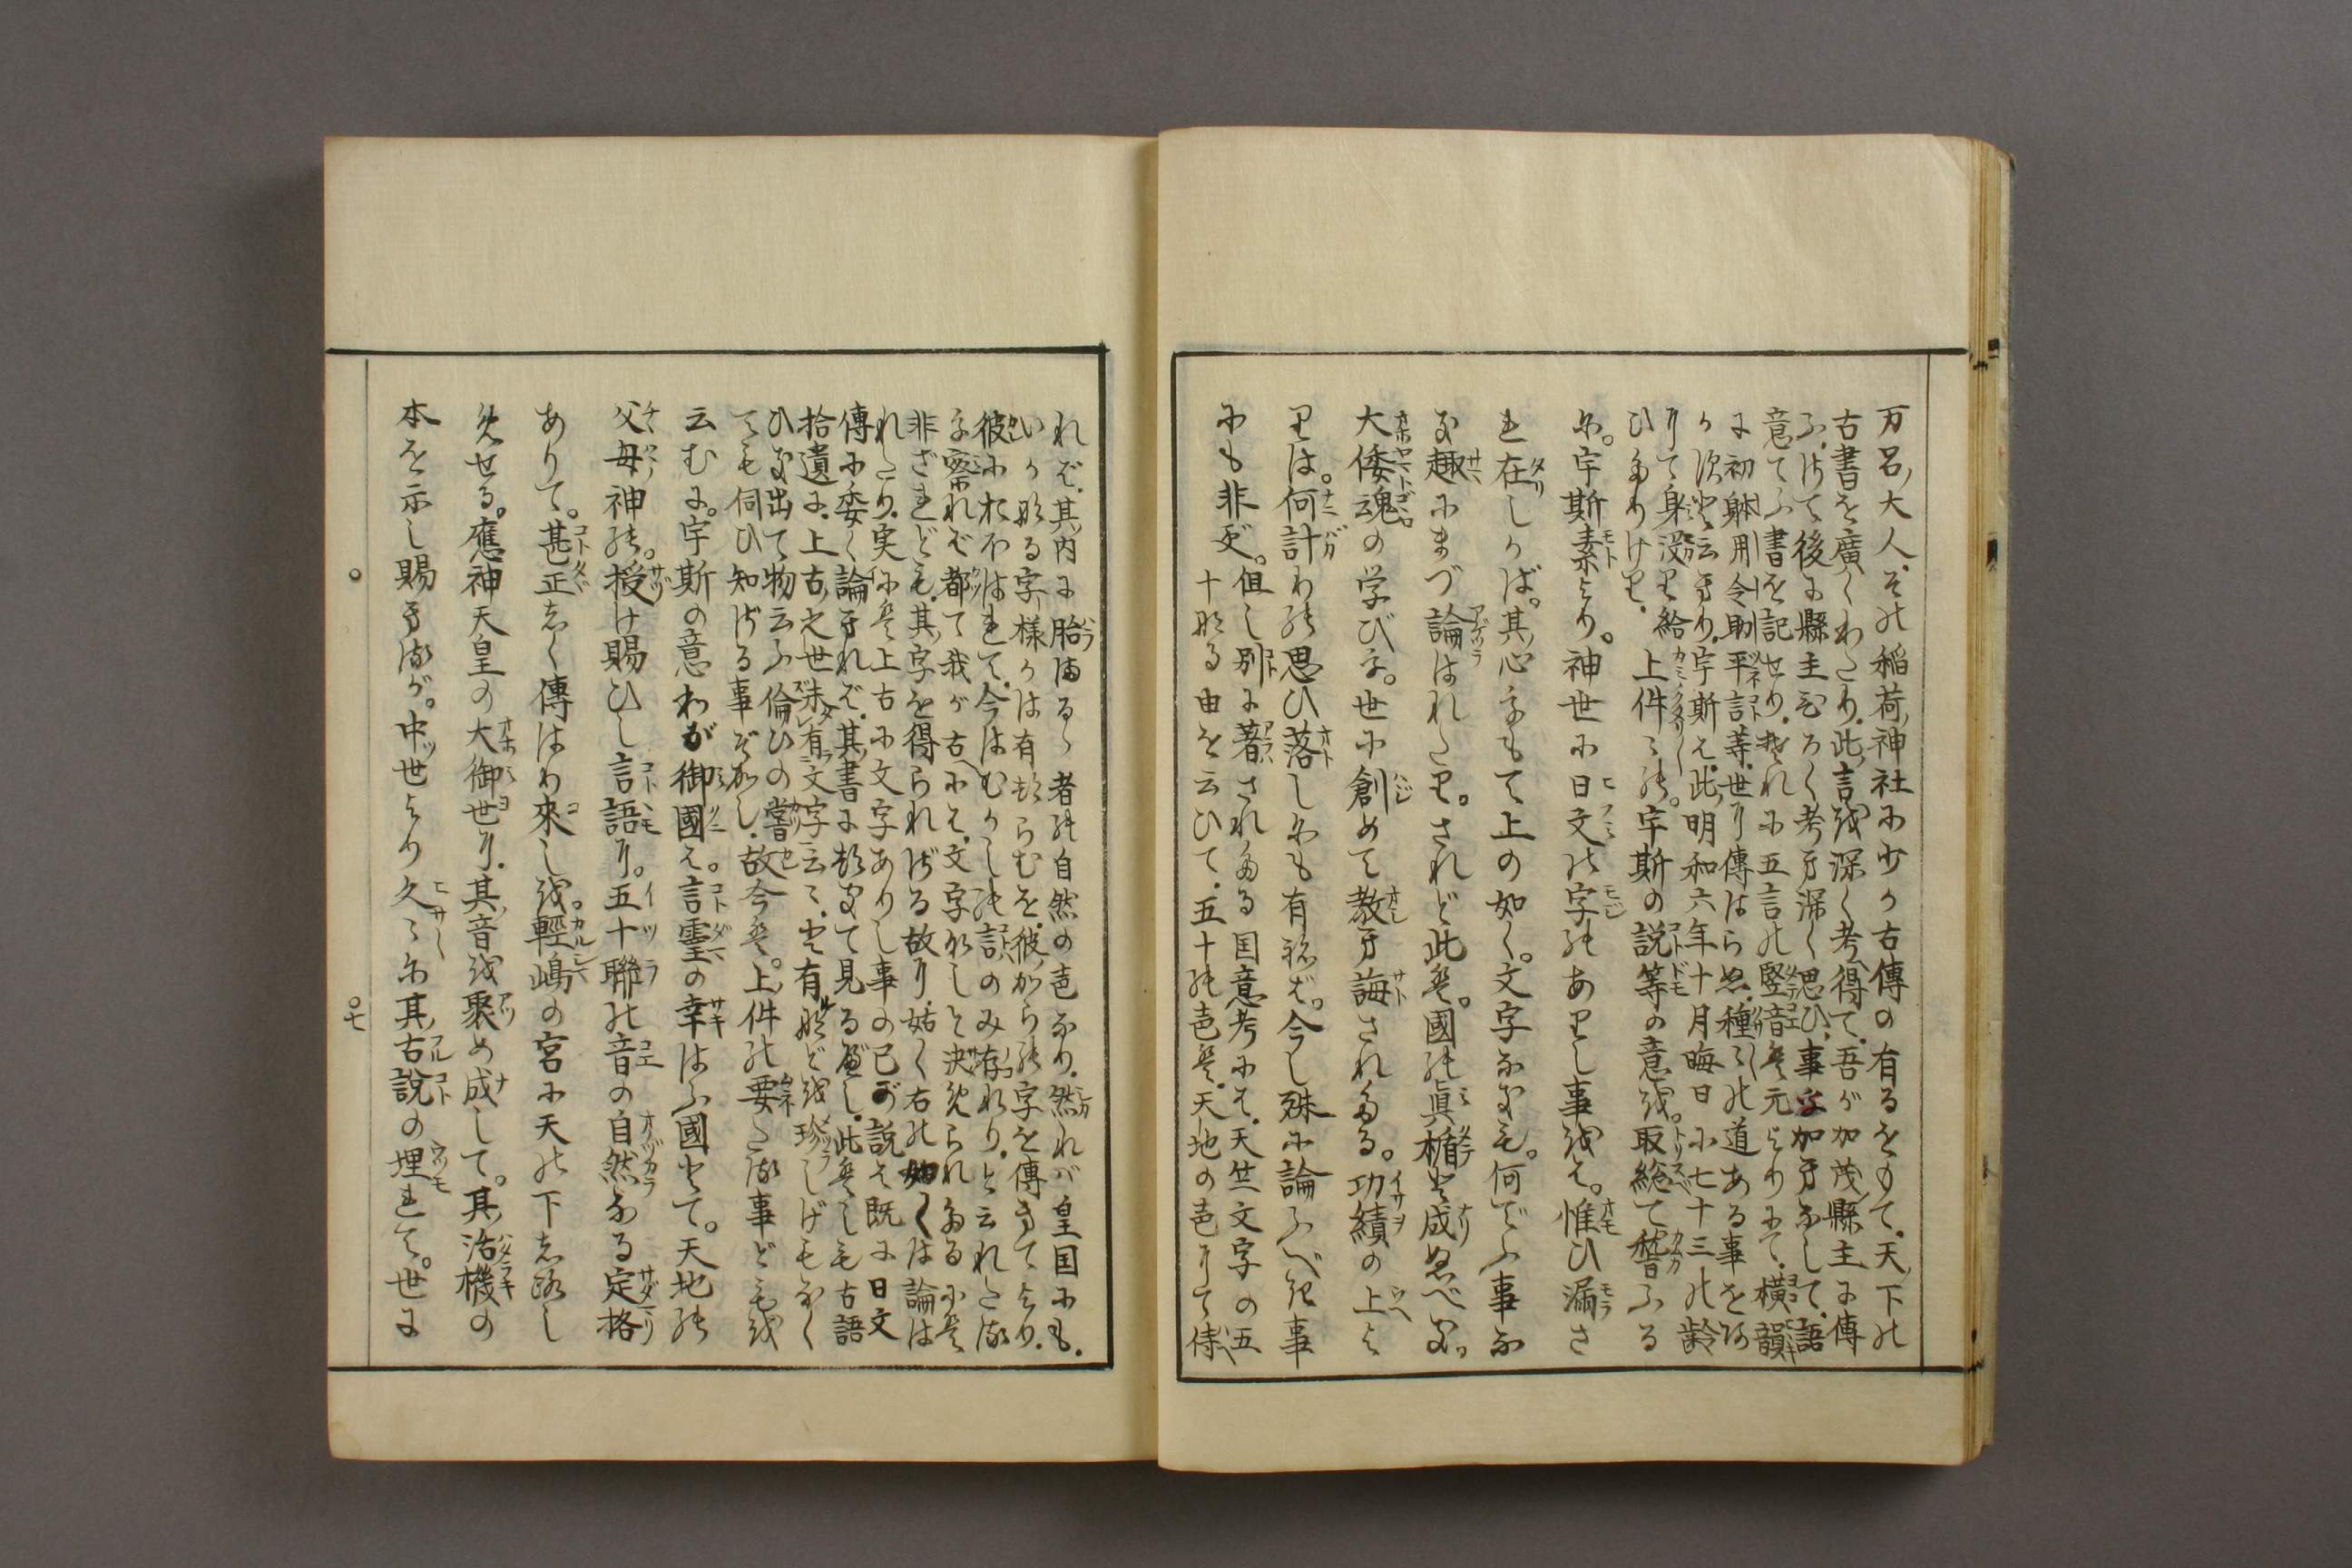 万呂大人、その稲荷神社に少か古傳の有るをもて、天下の
古書を廣くわたり、此言を深く考へ得て、吾が加茂縣主に傳
ふ、さて後に縣主ひろく考へ深く思ひ、事を加へなして、語
意てふ書を記せり、それに五言の竪音は元よりにて、横韻
に初躰用令助、平言等、世に傳はらぬ種々の道ある事をあ
か
りて身没り給
ひたりけり、
上件々の。宇斯の説等の意を。取総て稽ふる
に。宇斯素より。神世に日文の字のありし事をえ。惟ひ漏さ
れ在しかば。其心をもて上の如く。文字なきも。何でふ事な
き趣にまづ論はれたり。されど此は。國の眞楯と成ぬべき。
大倭魂の学びを。世に創めて教へ誨されたる。功績の上よ
りは。何計わの思ひ落しにも有ねば。今し殊に論ふべき事
にも非ず。
但し別に著されたる国意考にも、天竺文字の五
十なる由を云ひて、五十の音は、天地の音にて侍
れば、其内に胎まるゝ者の自然の音なり、然れバ皇国にも、
いか形る字様かは有けらむを、彼から字を傳へてより、
彼におほはれて、今はむかしの言のみ存れり、と云れたる
を察れば、都て我が古へにも、文字なしと決められたるには
非ざれども、其字を得られざる故に、姑く右の如くは論は
れたり、実には上古に文字ありし事の已が説は既に日文
傳に委く論へれば、其書に就て見るべし、此はしも古語
拾遺に、上古之世未有文字云々、と有などを珍しげもなく
ひき出て物云ふ倫ひの嘗
ても伺ひ知ざる事ぞかし、
故今は。上件の要たる事どもを
云むに。宇斯の意わが御國は。言霊の幸はふ國とて。天地の
父母神の。授け賜ひし言語に。五十聯の音の自然なる定格
ありて。甚正しく傳はり來しを。輕嶋の宮に天の下しろし
めせる。應神天皇の大御世に。其音を聚め成して。其活機の
本を示し賜へるが。中世より久しく其古説の埋れて。世に